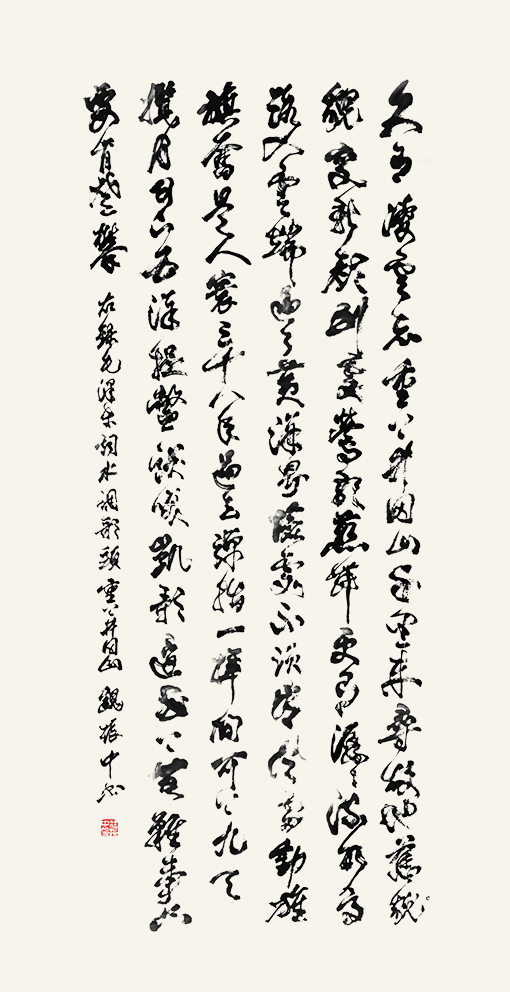 久有凌雲志重上井岡山千里来尋故地舊貌
貌變新顏到處鶯歌燕舞更有潺潺流水高
路入雲端過了黄洋界險處不須看風雷動旌
旗奮是人寰三十八年過去彈指一揮間可上九天
攬月可下五洋捉鱉談笑凱歌還世上無難事只
要肯登攀 右録毛澤東詞水調歌頭重上井岡山 魏振中書